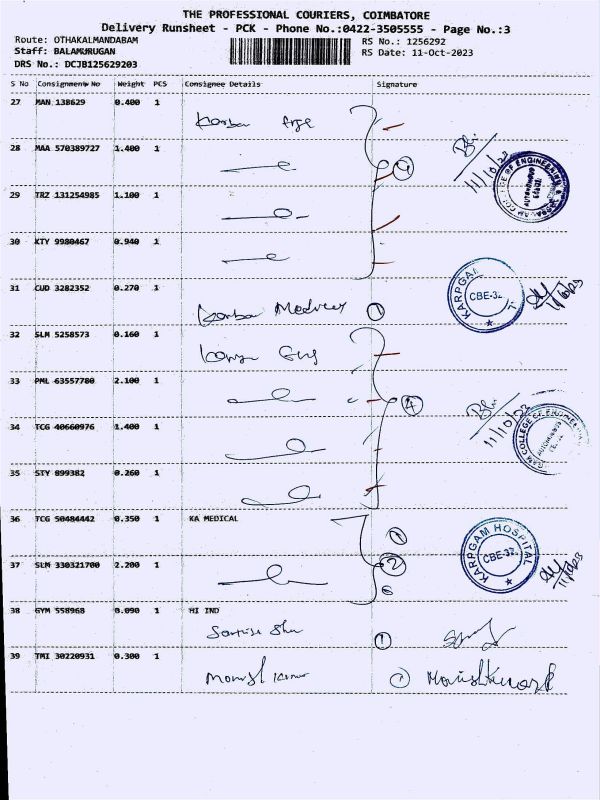 THE PROFESSIONAL COURIERS, COIMBATORE
Delivery Runsheet - PCK - Phone No.:0422-3505555 - Page No.:3
Route: OTHAKALMANDABAM
RS No.: 1256292
Staff: BALAMURUGAN
RS Date: 11-Oct-2023
DRS No.: DCJB125629203
S No Consignment No Weight PCS Consignee Details Signature
27 MAN 138629 0.400 1
28 MAA 570389727 1.400 1
4
11/10/23
29 TRZ 131254985 1.100 1
30 KTY 9980467 0.940 1
31 CUD 3282352 0.270 1
1
KARPGAM
CBE-32
32 SLM 5258573 0.160 1
33 PML 63557780 2.100 1
4
11/10/23
34 TCG 40660976 1.400 1
35 STY 899382 0.260 1
36 TCG 50484442 0.350 1 KA MEDICAL
1
KARPGAM HOSPITAL
CBE-32
37 SLM 330321700 2.200 1
2
38 GYM 558968 0.090 1 HI IND
1
39 TMI 30220931 0.300 1
1